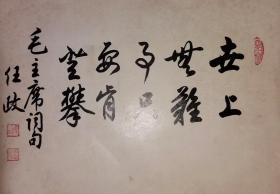 世上
无难
事只
要肯
登攀
毛主席词句
任政